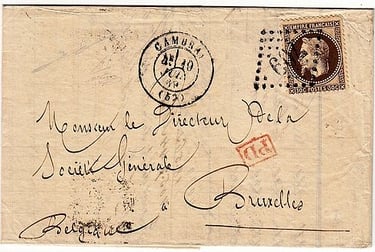 CAMBRAI
19
(57)
EMPIRE FRANÇAIS
30C POSTES 30C
Monsieur le Directeur de la
Société Générale
PD
à Bruxelles
Belgique